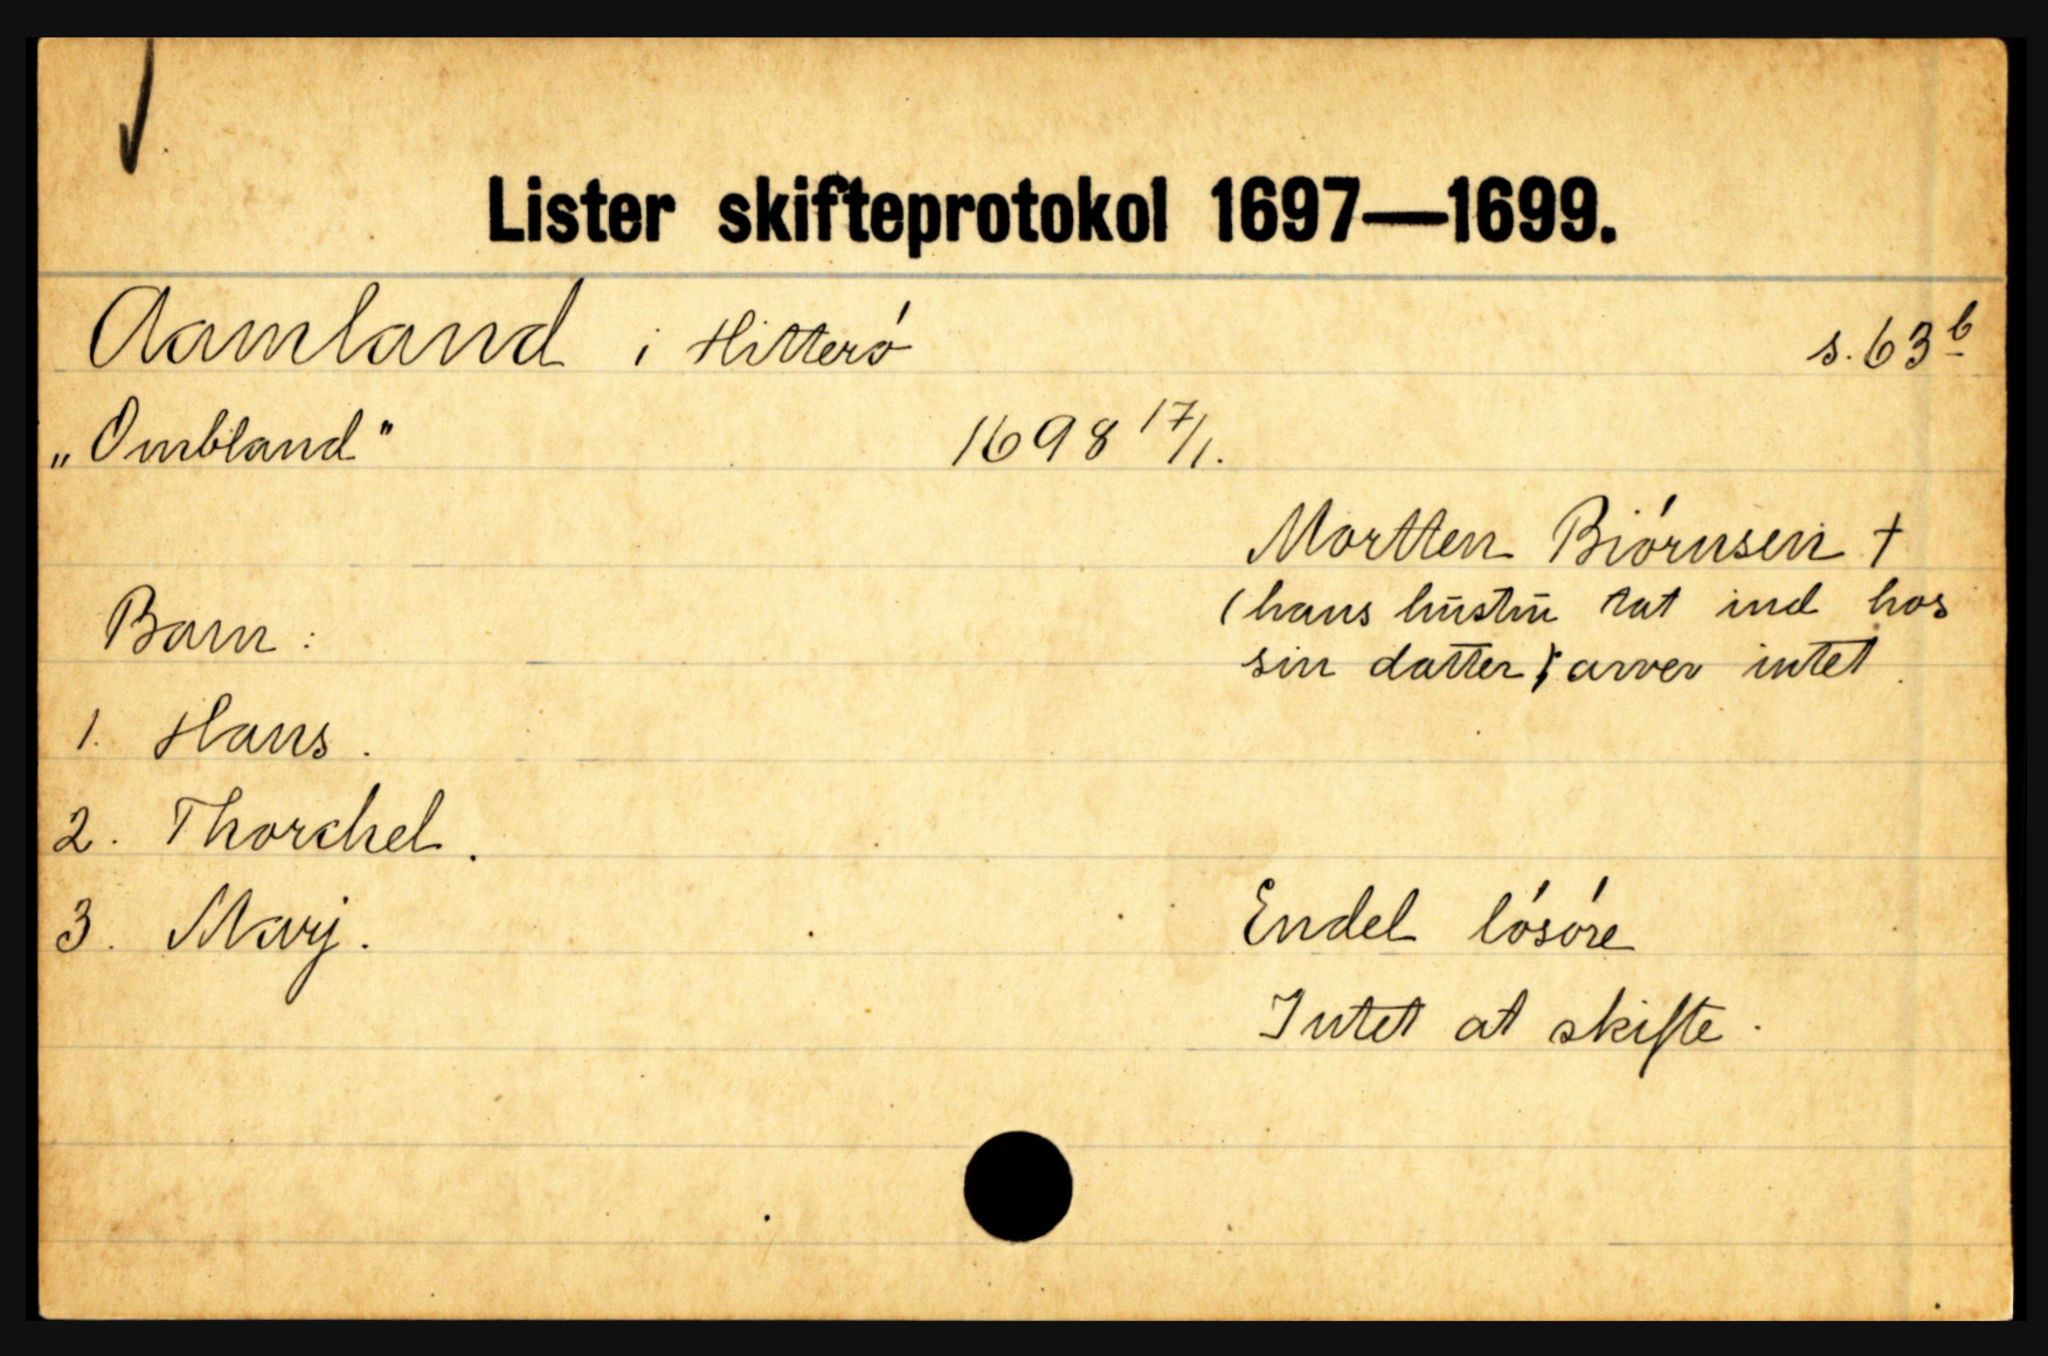 Lister skifteprotokol 1697—1699.
Aamland i Hitteró s. 63 b
„Ombland" 1698 17/1.
Mortten Biórnsen †
(hans hūstrū tat ind hos
Barn:
sin datter; arver intet.
1. Hans.
2. Thorchel.
3. Marj. Endel lósóre
Intet at skifte.